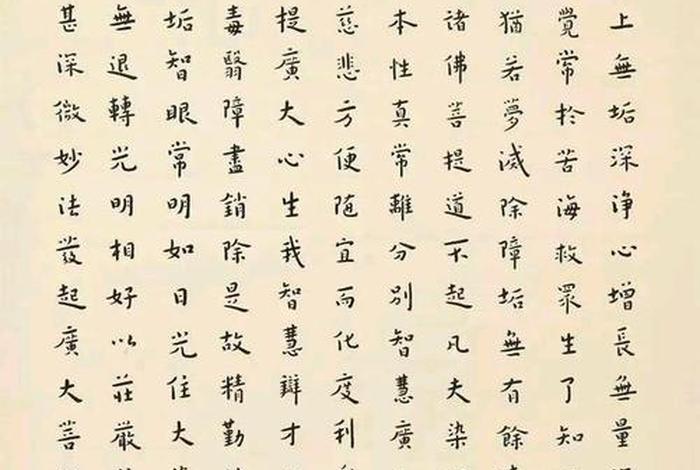 上無垢深淨心增長無量
覺常於苦海救眾生了知
猶若夢滅除障垢無有餘
諸佛菩提道不起凡夫染
本性真常離分別智慧廣
慈悲方便随宜而化度利
提廣大心生我智慧辯才
毒翳障盡銷除是故精勤
垢智眼常明如日光住大
無退轉光明相好以莊嚴
甚深微妙法發起廣大菩